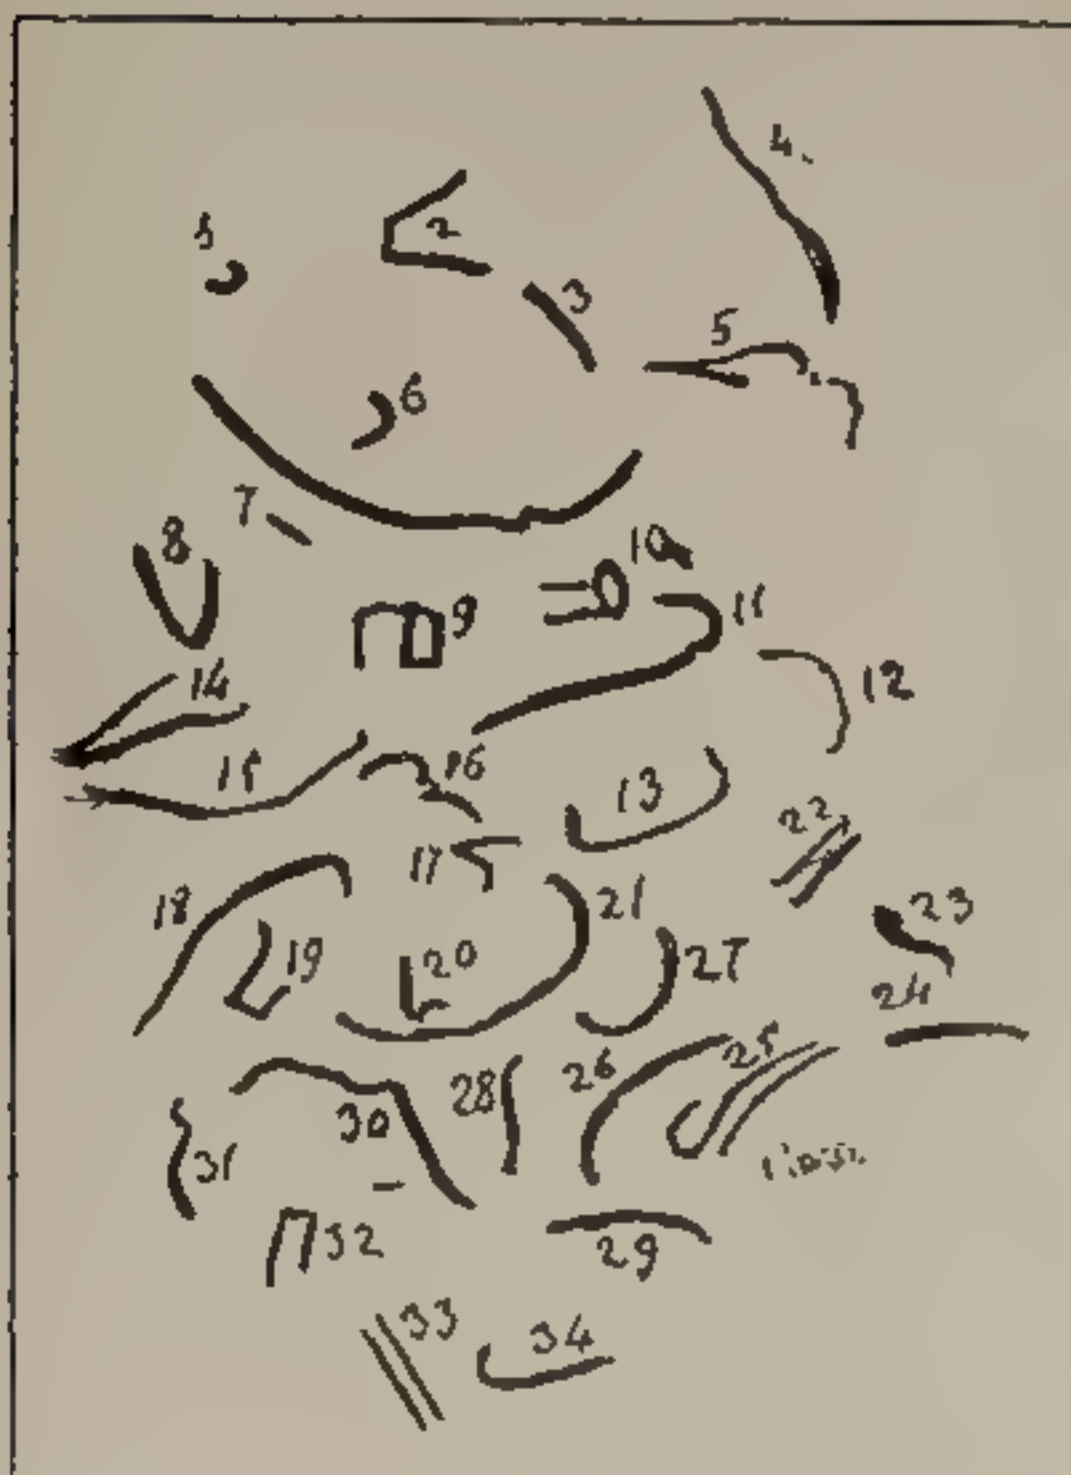 1
2
3
4.
5
6
7
8
9
10
11
12
13
14
15
16
17
18
19
20
21
22
23
24
25
26
27
28
29
30
31
32
33
34